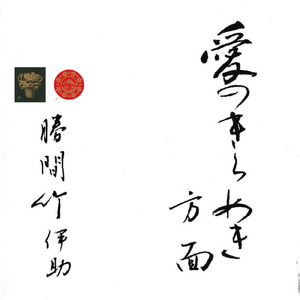 愛のきらめき
方面
勝間竹伊助